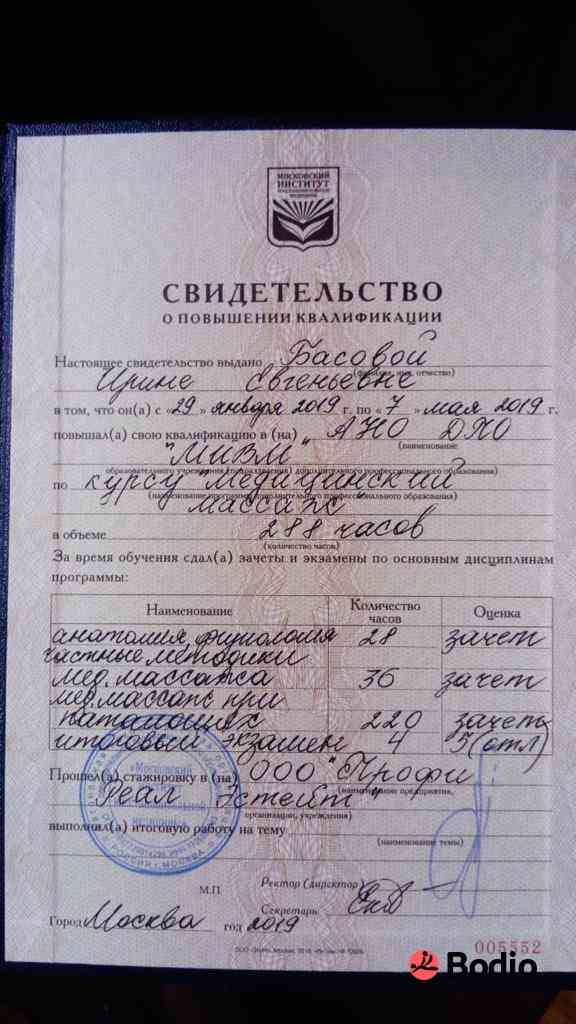 МОСКОВСКИЙ
ИНСТИТУТ
СВИДЕТЕЛЬСТВО
О ПОВЫШЕНИИ КВАЛИФИКАЦИИ
Настоящее свидетельство выдано Басовой
(фамилия, имя, отчество)
Ирине Евгеньевне
в том, что он(а) с «29» января 2019 г. по «7» мая 2019 г.
повышал(а) свою квалификацию в (на) АНО ДХО
(наименование
"МИВМ"
образовательного учреждения (подразделения) дополнительного профессионального образования)
по курсу "Медицинский
(наименование программы дополнительного профессионального образования)
массаж"
в объеме 288 часов
(количество часов)
За время обучения сдал(а) зачеты и экзамены по основным дисциплинам
программы:
Наименование Количество часов Оценка
анатомия, физиология 28 зачет
частные методики
мед. массажа 36 зачет
мед. массаж при
патологиях 220 зачет
итоговый экзамен 4 5 (отл)
Прошел(а) стажировку в (на) ООО "Профи
(наименование предприятия,
Реал Эстейт"
организации, учреждения)
выполнил(а) итоговую работу на тему
(наименование темы)
«Московский
М.П.
Ректор (директор)
Секретарь
Город Москва год 2019
005552
Bodio